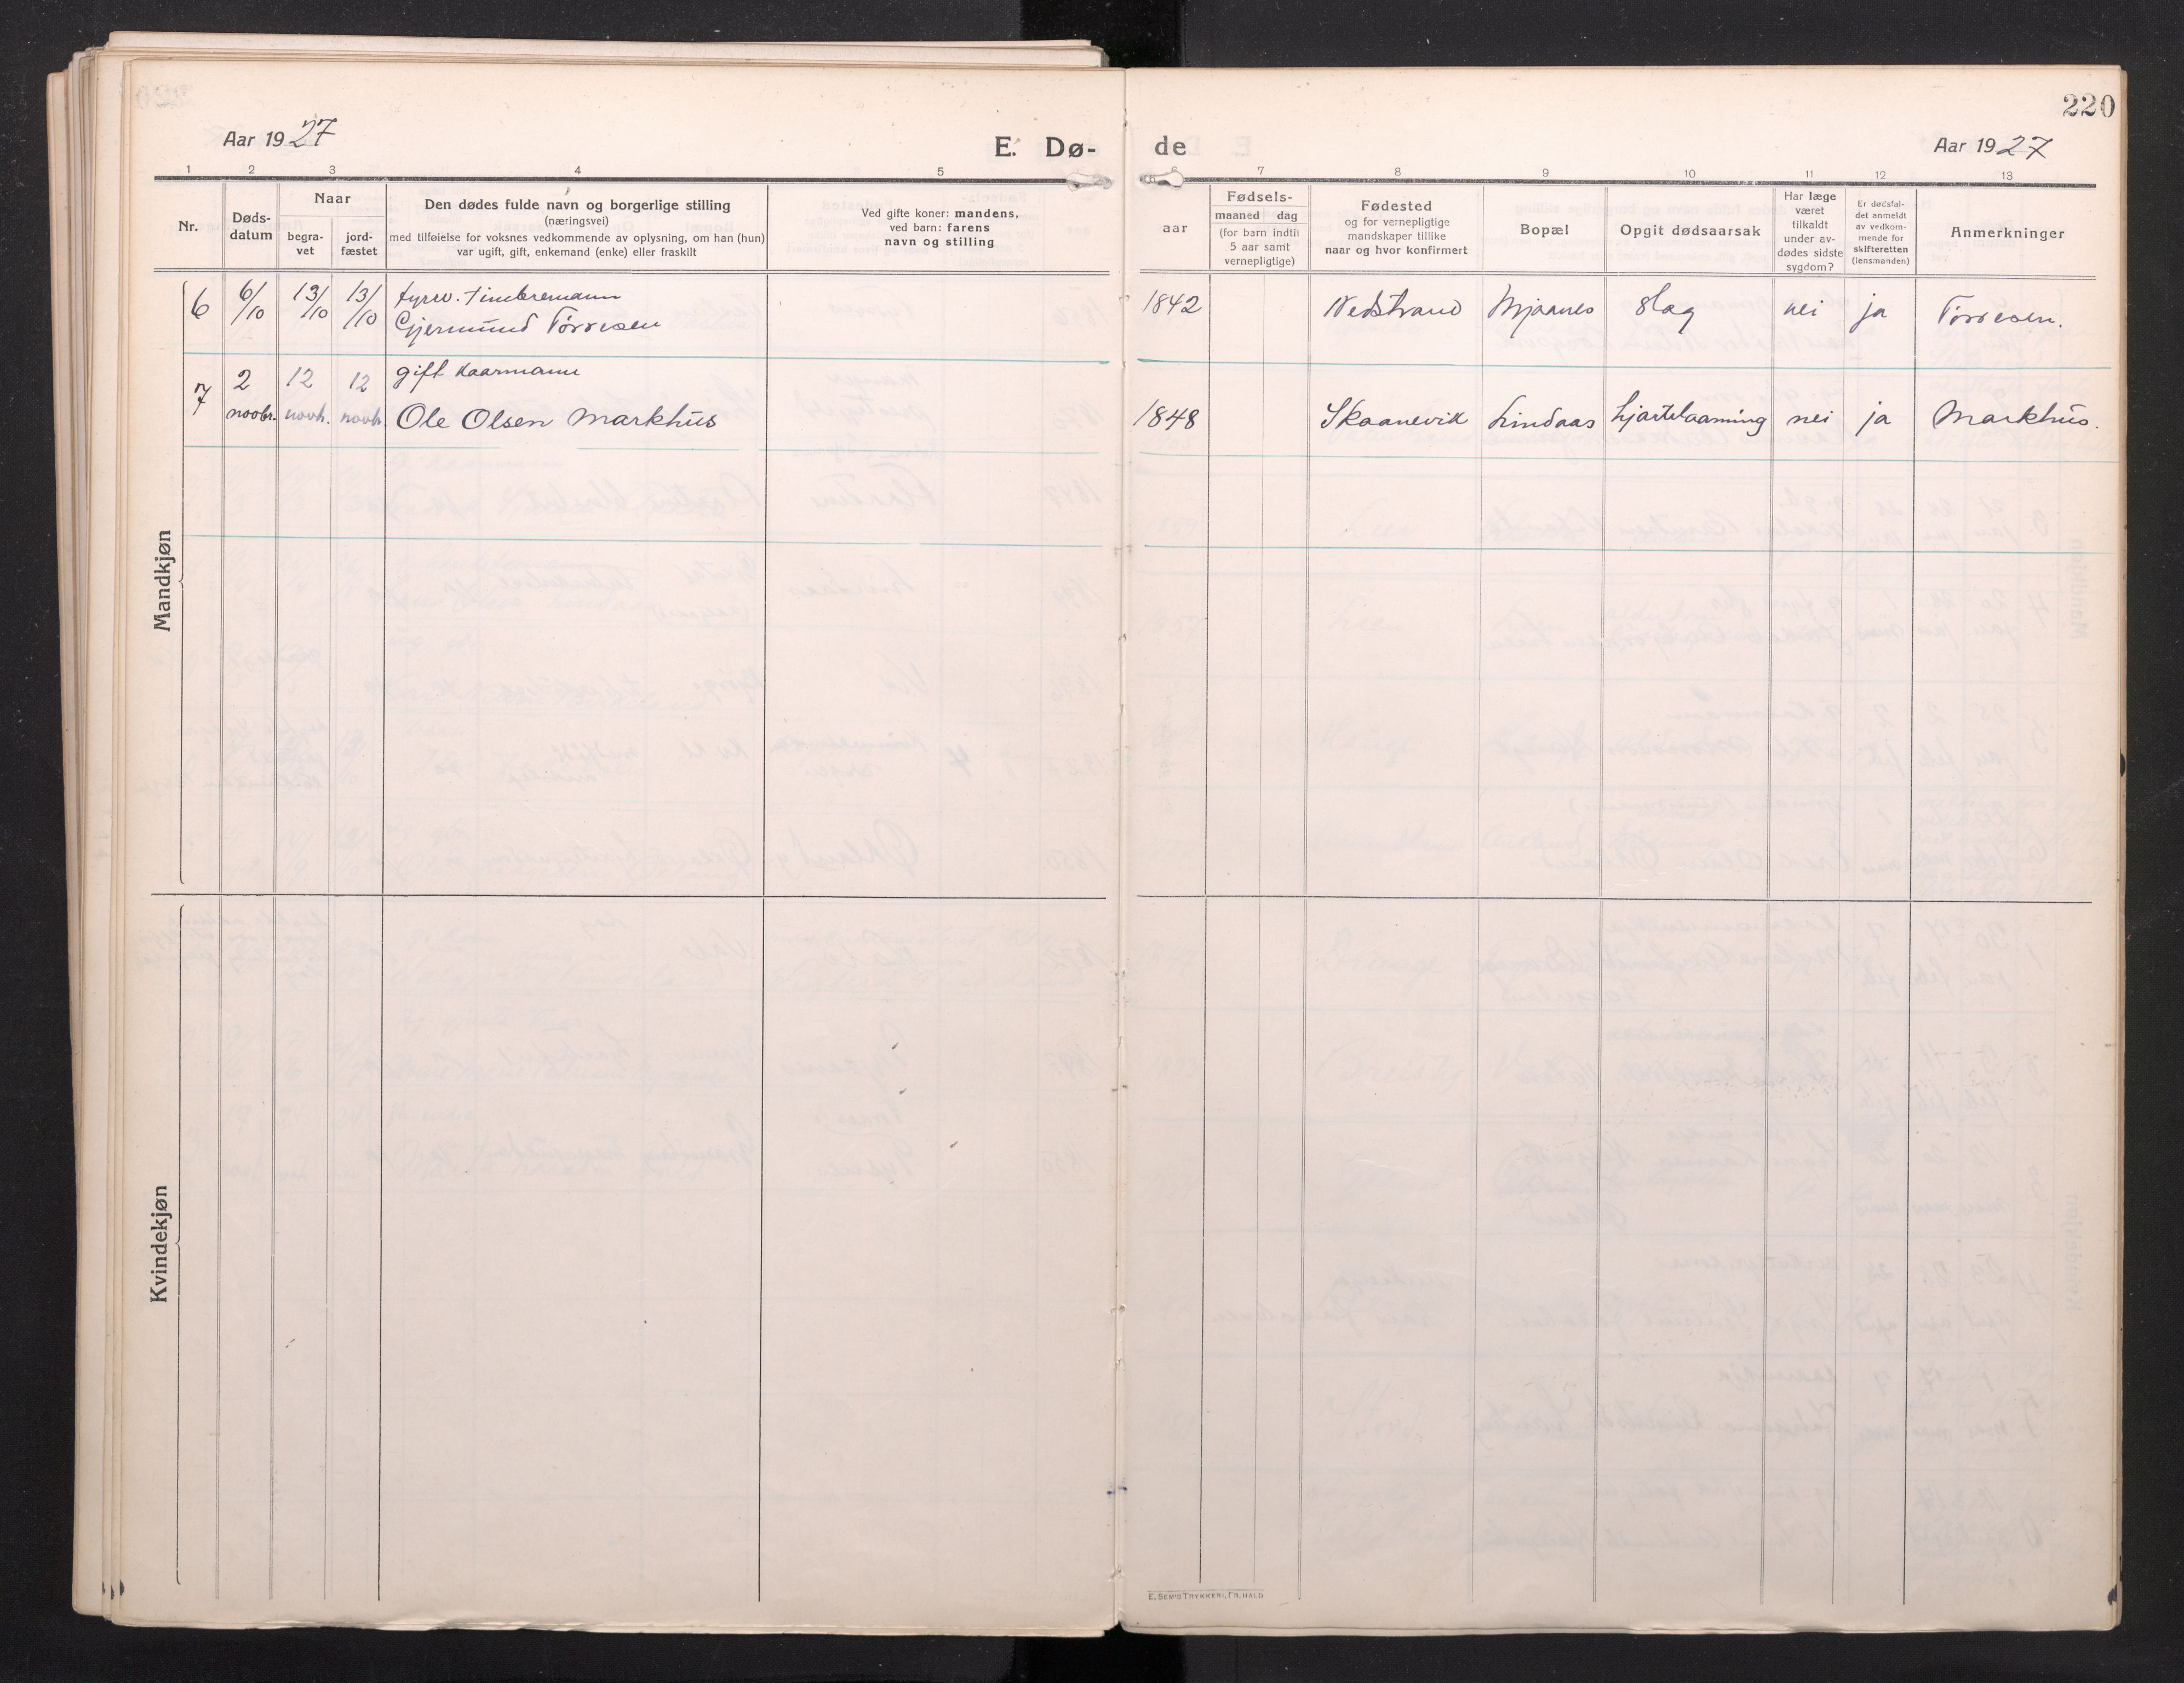 220
Aar 1927
E. Dø-
de
Aar 1927
1 2 3 4 5 6 7 8 9 10 11 12 13
Nr.
Døds-
datum
Naar
begra-
vet
jord-
fæstet
Den dødes fulde navn og borgerlige stilling
(næringsvei)
med tilføielse for voksnes vedkommende av oplysning, om han (hun)
var ugift, gift, enkemand (enke) eller fraskilt
Ved gifte koner: mandens,
ved barn: farens
navn og stilling
aar
Fødsels-
maaned dag
(for barn indtil
5 aar samt
vernepligtige)
Fødested
og for vernepligtige
mandskaper tillike
naar og hvor konfirmert
Bopæl
Opgit dødsaarsak
Har læge
været
tilkaldt
under av-
dødes sidste
sygdom?
Er dødsfal-
det anmeldt
av vedkom-
mende for
skifteretten
(lensmanden)
Anmerkninger
Mandkjøn
6 6/10 13/10 13/10 fyrrv. timbremann
Gjermund Tørresen 1842 Nedstrand Mjaanes slag nei ja Tørresen.
7 2 12 12 gift kaarmann
novbr. novb. novbr. Ole Olsen Markhus 1848 Skaanevik Lindaas hjartelaaming nei ja Markhus.
Kvindekjøn
E. SEM'S TRYKKERI, FR. HALD